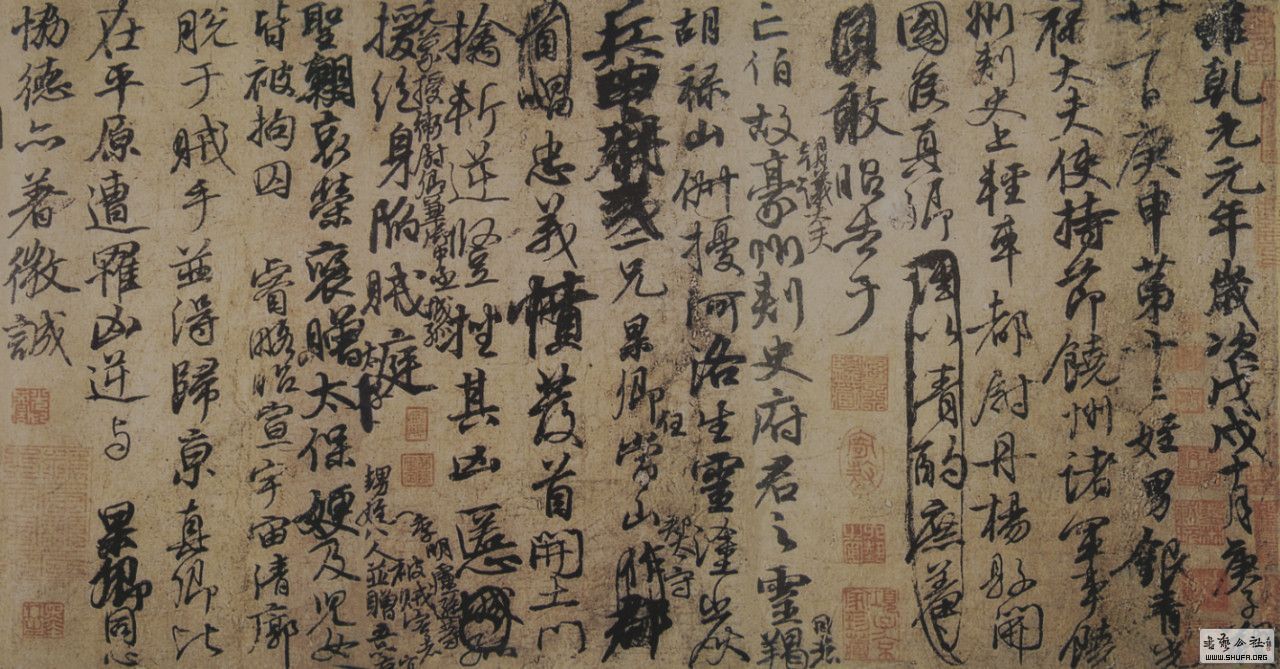 維乾元元年歲次戊戌十月庚子朔
廿一日庚申第十三姪男銀青光
祿大夫使持節饒州諸軍事饒
州刺史上輕車都尉丹楊縣開
國侯真卿謹以清酌庶羞
敢昭告于
朝議大夫
亡伯故豪州刺史府君之靈羯
胡祿山俶擾河洛生靈塗炭
二兄杲卿任常山郡
太守
首唱忠義憤發首開土門
擒斬逆豎挫其凶慝
蒙授衛尉卿兼御史中丞城孤
援絕身陷賊庭
聖朝哀榮褒贈太子太保嫂及兒女
甥姪八人並贈五
皆被拘囚 睿略昭宣宇宙清廓
脫于賊手並得歸京真卿比
在平原遭罹凶逆与 杲卿同心
協德亦著微誠
書藝公社
WWW.SHUFA.ORG